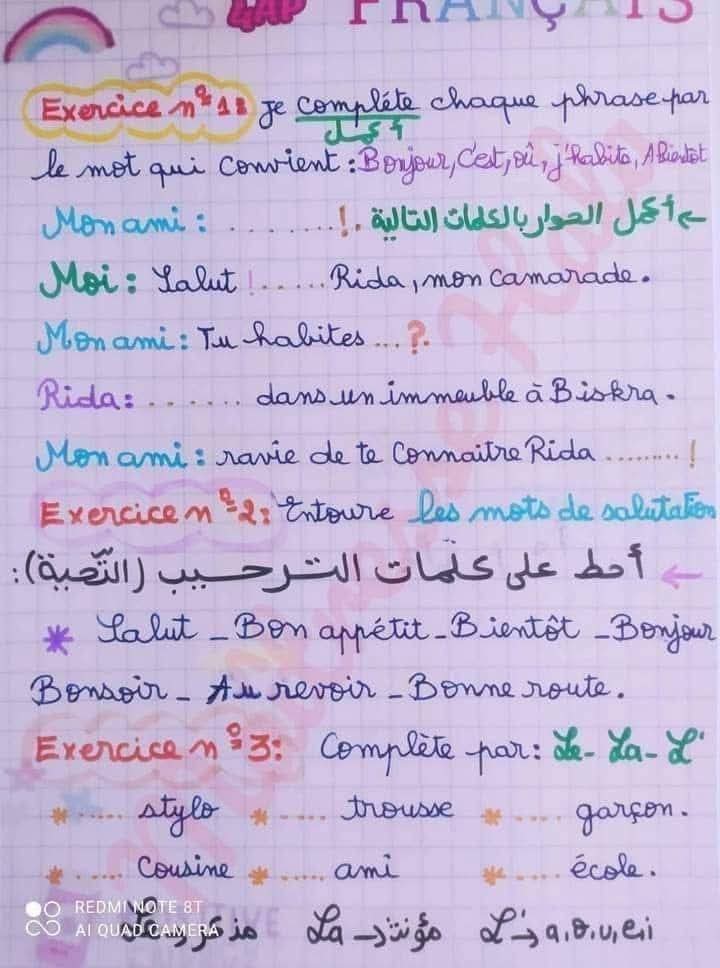 4AP FRANÇAIS
Exercice n° 1: Je complète chaque phrase par
أكمل
le mot qui convient : Bonjour, C'est, où, j'habite, A Bientôt
Mon ami : ........!. ← أكمل الحوار بالكلمات التالية
Moi : Salut !..... Rida, mon camarade.
Mon ami : Tu habites ...?.
Rida : ....... dans un immeuble à Biskra.
Mon ami : ravie de te Connaitre Rida ........!
Exercice n°2: Entoure les mots de salutation
← أحط على كلمات الترحيب (التّحية):
* Salut - Bon appétit - Bientôt - Bonjour
Bonsoir - Au revoir - Bonne route.
Exercice n°3: Complète par: Le - La - L'
* ..... stylo * ..... trousse * .... garçon.
* ..... Cousine * ..... ami * .... école.
REDMI NOTE 8T
AI QUAD CAMERA
Le → مذكر La → مؤنث L' → a, o, u, e, i